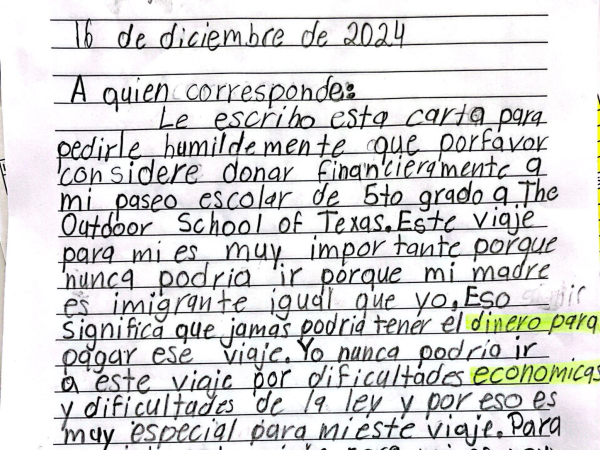 16 de diciembre de 2024
A quien corresponde:
Le escribo esta carta para
pedirle humildemente que porfavor
considere donar financieramente a
mi paseo escolar de 5to grado a The
Outdoor School of Texas. Este viaje
para mi es muy importante porque
nunca podria ir porque mi madre
es imigrante igual que yo. Eso
significa que jamas podria tener el dinero para
pagar ese viaje. Yo nunca podria ir
a este viaje por dificultades economicas
y dificultades de la ley y por eso es
muy especial para mi este viaje. Para